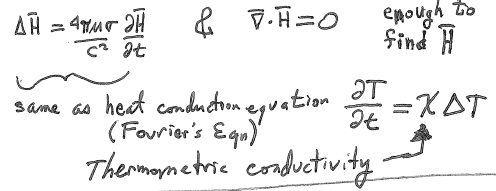 ΔH̄ = 4πμσ/c² ∂H̄/∂t & ∇̄·H̄ = 0 enough to find H̄
same as heat conduction equation ∂T/∂t = χ ΔT
(Fourier's Eqn)
Thermometric conductivity